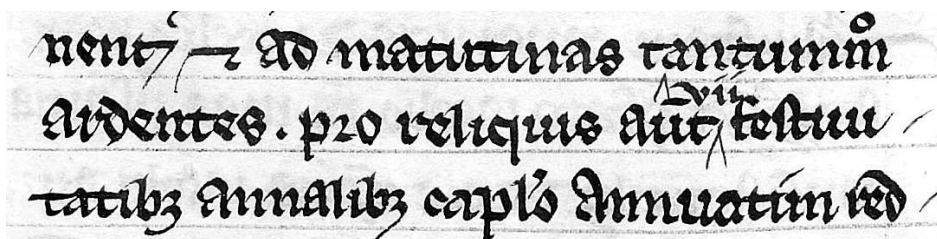 nent᷑ ⁊ ad matutinas tantummͦ
ardentes . pro reliquis aut᷑ \vii/ festiui
tatibꝫ annalibꝫ caplo Annuatim red